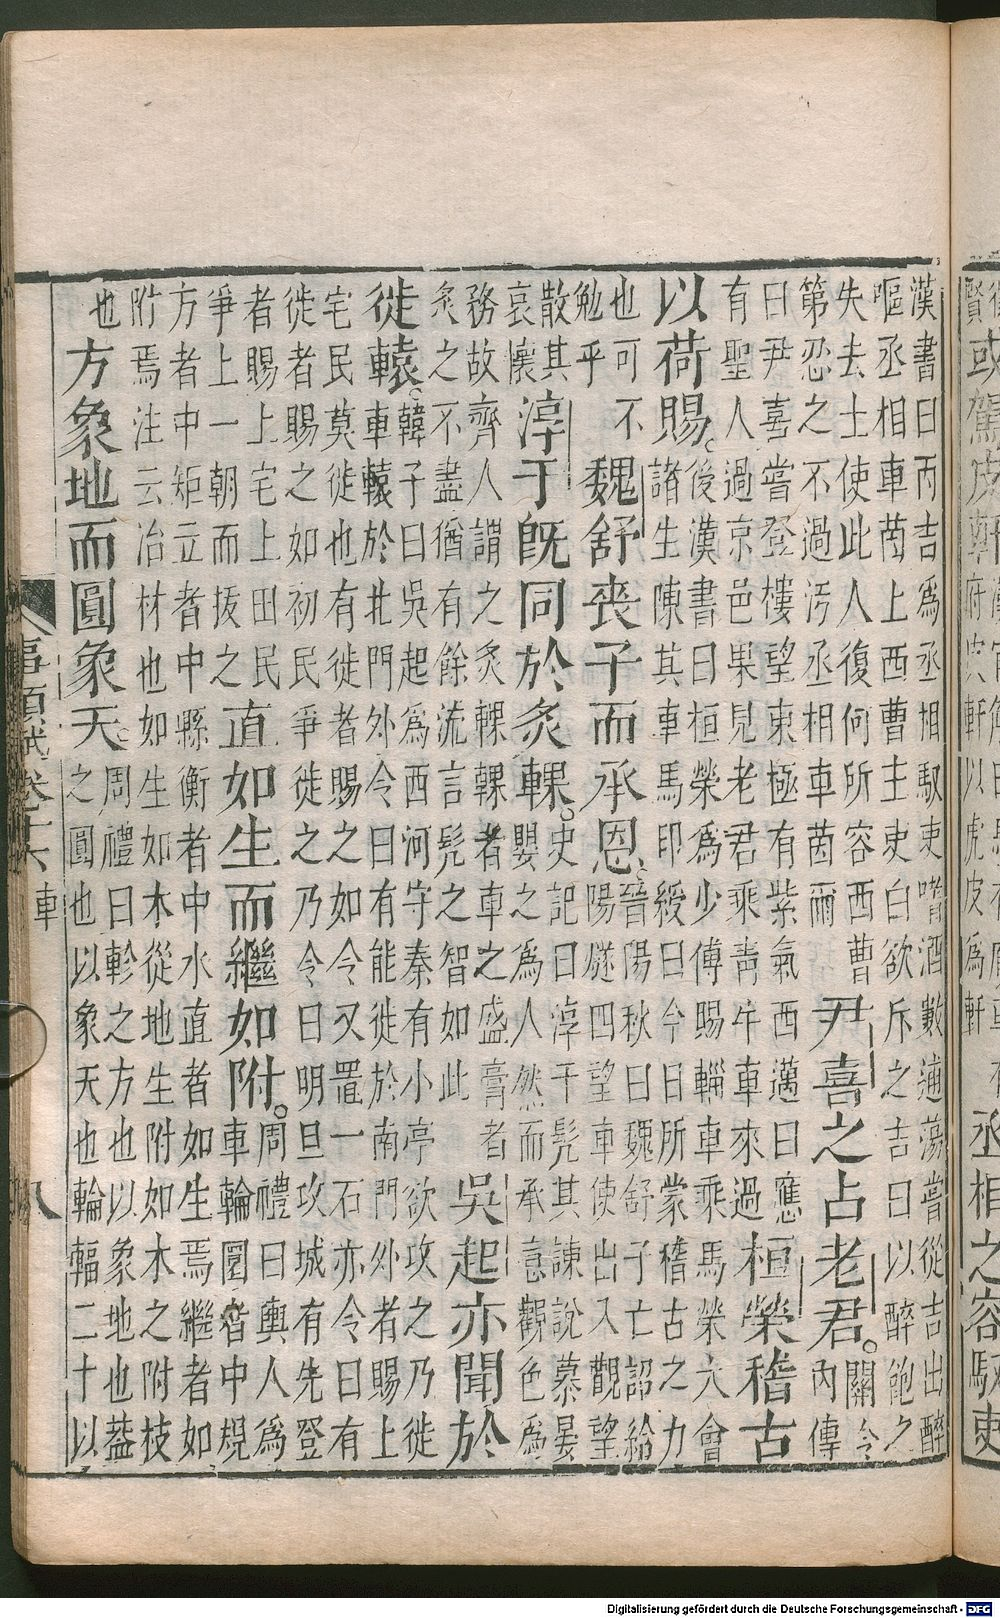 或駕皮軒
皮軒以虎皮爲軒
丞相之容馭吏
漢書曰丙吉爲丞相馭吏嗜酒數逋蕩嘗從吉出醉
嘔丞相車茵上西曹主吏白欲斥之吉曰以醉飽之
失去士使此人復何所容西曹
第忍之不過汚丞相車茵爾
尹喜之占老君。
關令
內傳
曰尹喜嘗登樓望東極有紫氣西邁曰應
有聖人過京邑果見老君乘靑牛車來過
桓榮稽古
以荷賜。
後漢書曰桓榮爲少傅賜輜車乘馬榮大會
諸生陳其車馬印綬曰今日所蒙稽古之力
也可不
勉乎
魏舒喪子而承恩。
晉陽秋曰魏舒子亡詔給
陽燧四望車使出入觀望
散其
哀懷
淳于旣同於炙輠。
史記曰淳于髡其諫說慕晏
嬰之爲人然而承意觀色爲
務故齊人謂之炙輠輠者車之盛膏者
炙之不盡猶有餘流言髡之智如此
吳起亦聞於
徙轅。
韓子曰吳起爲西河守秦有小亭欲攻之乃徙
車轅於北門外令曰有能徙於南門外者賜上
宅民莫徙也有徙者賜之如令又置一石亦令曰有
徙者賜之如初民爭徙之乃令曰明旦攻城有先登
者賜上宅上田民
爭上一朝而拔之
直如生而繼如附。
周禮曰輿人爲
車輪圜者中規
方者中矩立者中縣衡者中水直者如生焉繼者如
附焉注云冶材也如生如木從地生附如木之附枝
也
方象地而圓象天。
周禮曰軫之方也以象地也蓋
之圓也以象天也輪輻二十以
事類賦卷十六 車 八
Digitalisierung gefördert durch die Deutsche Forschungsgemeinschaft - DFG